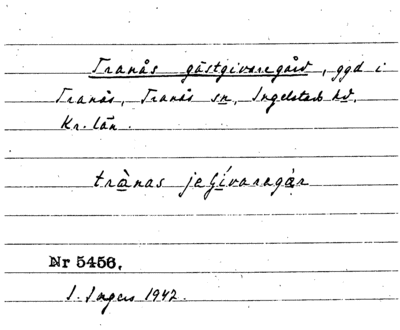 Tranås gästgivaregård, ggd i
Tranås, Tranås sn, Ingelstads hd,
Kr. län.
trànas jeʃívaragàr
Nr 5456.
S. Ingers 1942.